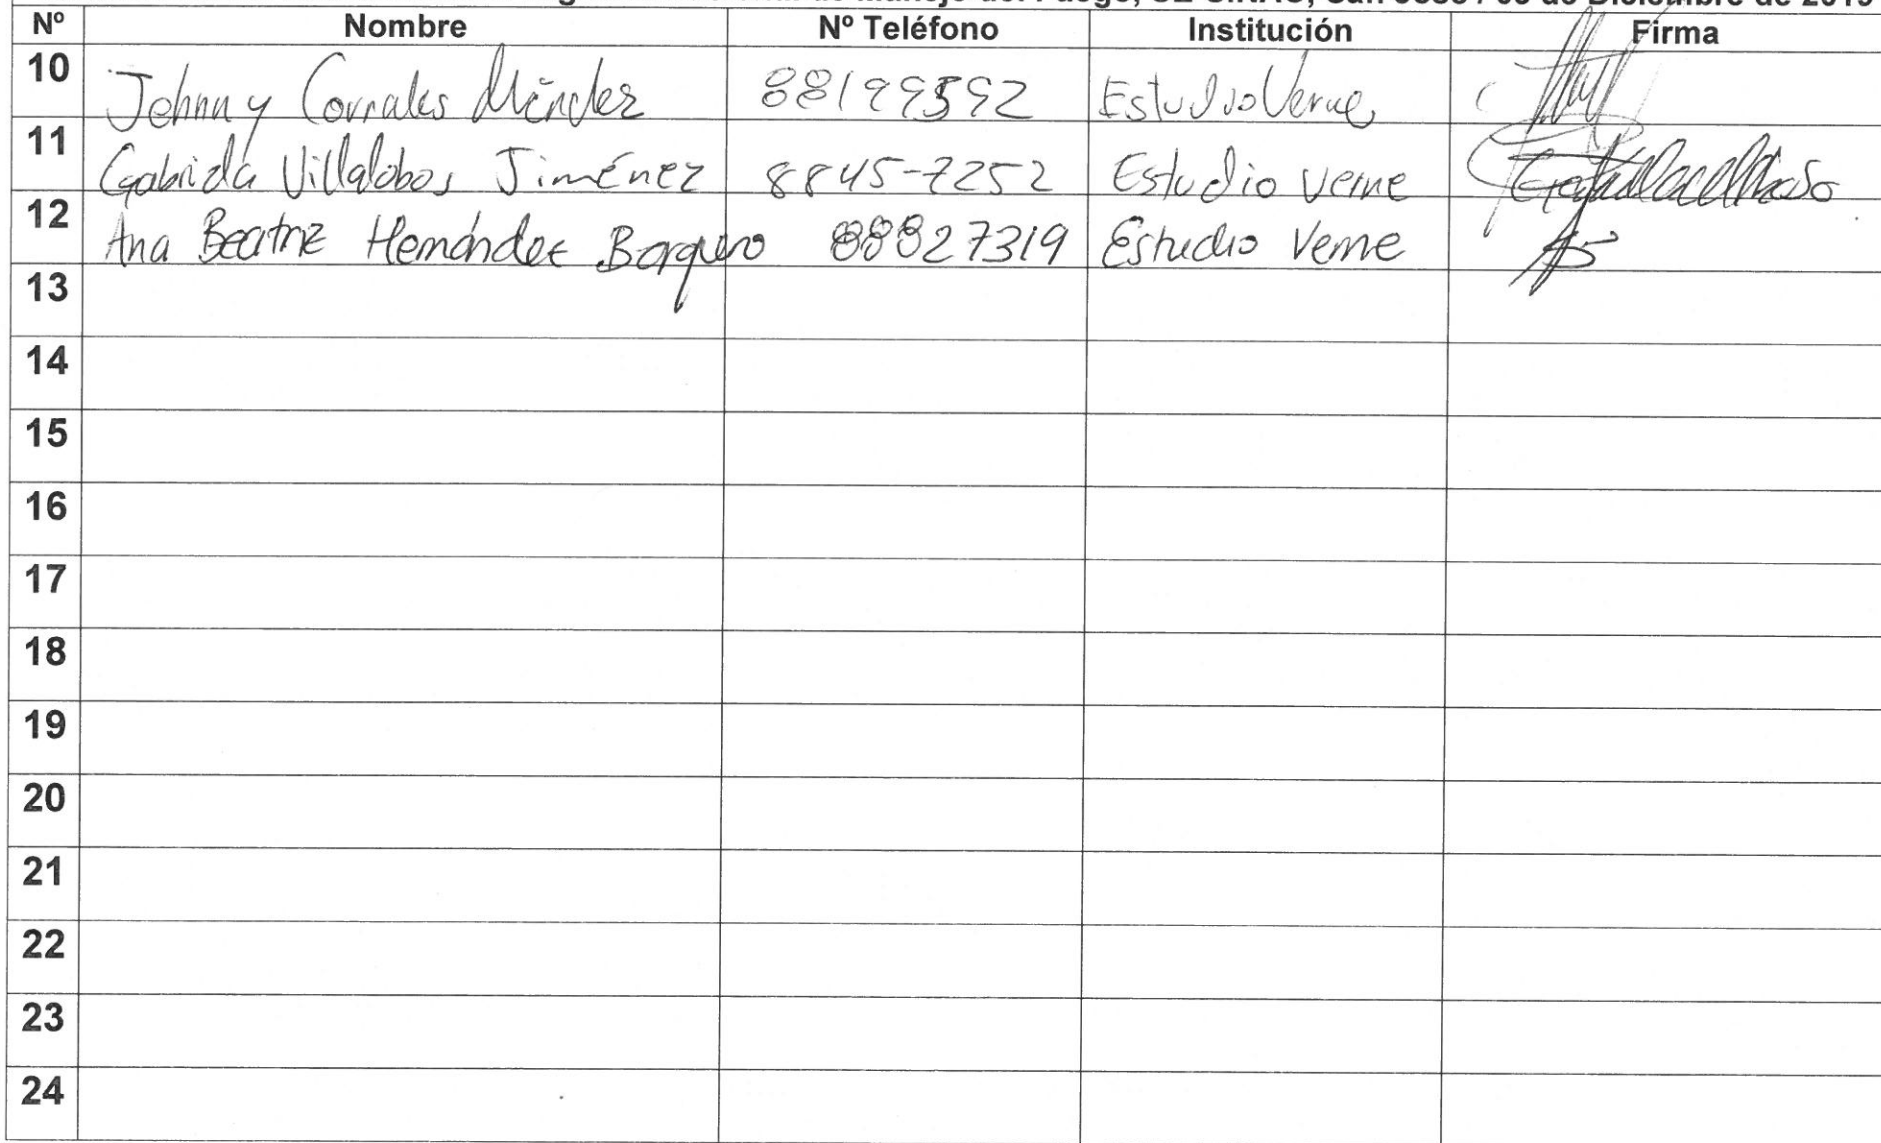 Manejo del Fuego, SE-SINAC, San José / 05 de Diciembre de 2019
Nº Nombre Nº Teléfono Institución Firma
10 Johnny Corrales Méndez 88199592 Estudio Verne
11 Gabriela Villalobos Jiménez 8845-7252 Estudio Verne
12 Ana Beatriz Hernández Barquero 88827319 Estudio Verne
13
14
15
16
17
18
19
20
21
22
23
24